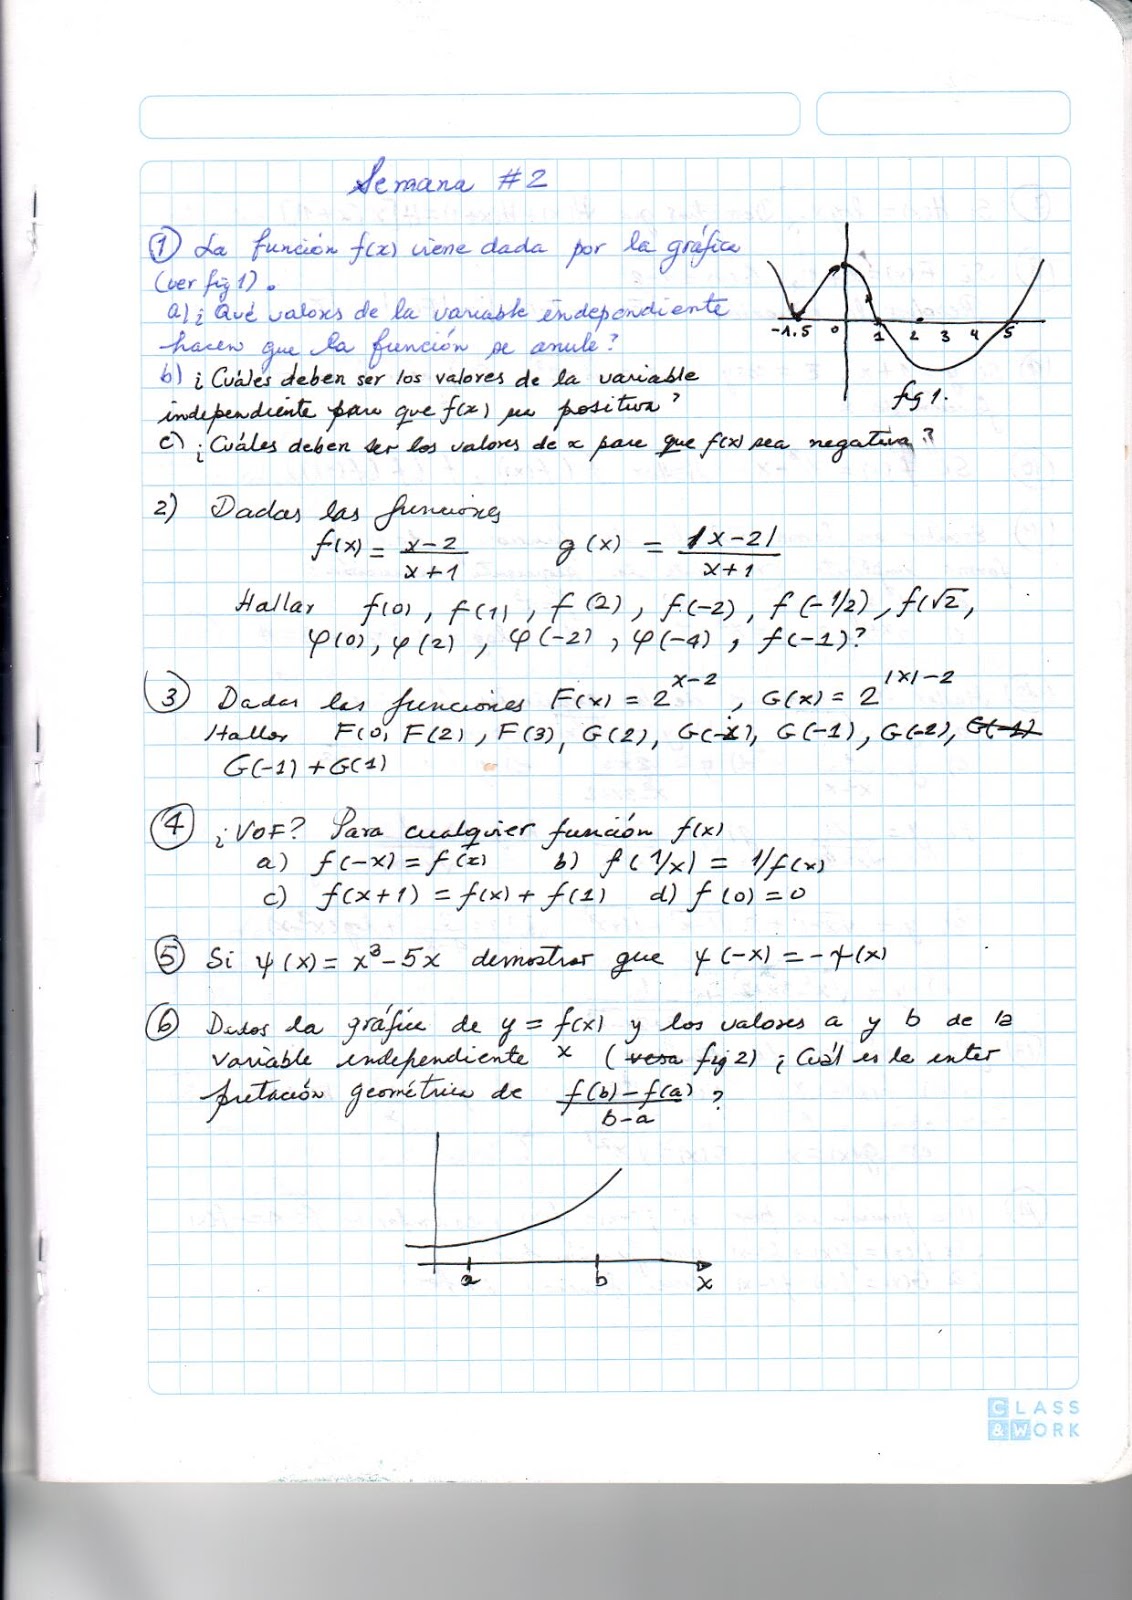 Semana #2
① La función f(x) viene dada por la gráfica
(ver fig 1).
a) ¿Qué valores de la variable independiente
hacen que la función se anule?
b) ¿Cuáles deben ser los valores de la variable
independiente para que f(x) sea positiva?
c) ¿Cuáles deben ser los valores de x para que f(x) sea negativa?
-1.5 0 1 2 3 4 5
fig 1.
2) Dadas las funciones
f(x) = x-2 / x+1 g(x) = |x-2| / x+1
Hallar f(0), f(1), f(2), f(-2), f(-1/2), f(√2,
φ(0), φ(2), φ(-2), φ(-4), f(-1)?
③ Dadas las funciones F(x) = 2^x-2, G(x) = 2^|x|-2
Hallar F(0, F(2), F(3), G(2), G(-x), G(-1), G(-2),
G(-1)+G(1)
④ ¿VoF? Para cualquier función f(x)
a) f(-x) = f(x) b) f(1/x) = 1/f(x)
c) f(x+1) = f(x) + f(1) d) f(0) = 0
⑤ Si ψ(x) = x³-5x demostrar que ψ(-x) = -ψ(x)
⑥ Dados la gráfica de y = f(x) y los valores a y b de la
variable independiente x (fig 2) ¿Cuál es la inter
pretación geométrica de f(b)-f(a) / b-a ?
a b x
CLASS
&WORK